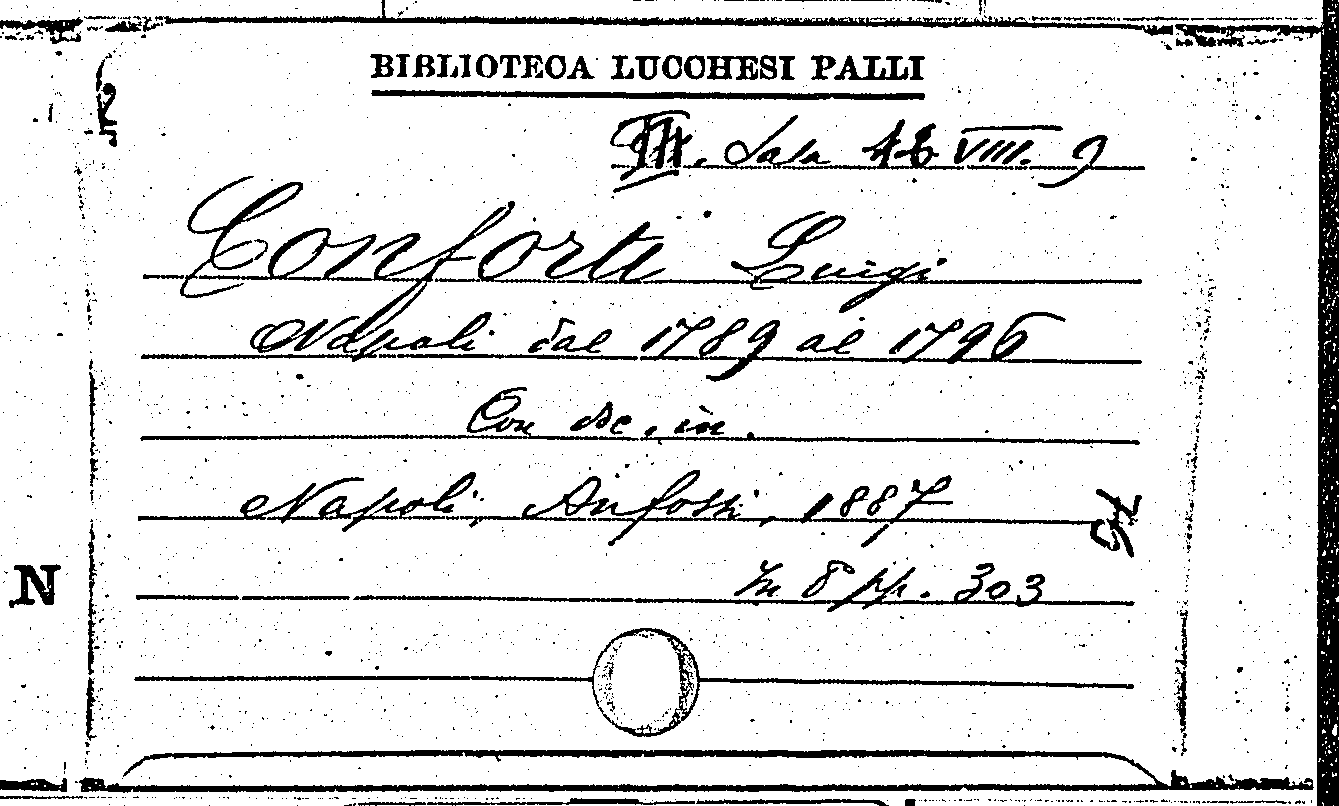 BIBLIOTECA LUCCHESI PALLI
III. Sala VIII. 9
Conforti Luigi
Napoli dal 1789 al 1796
Con doc. in.
Napoli, Anfossi, 1887
In 8 pp. 303
N